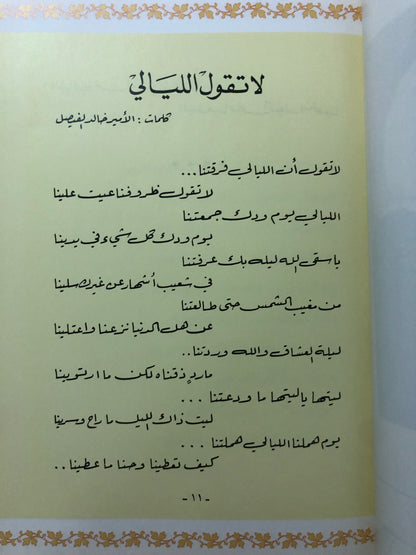 لا تقول الليالي
كلمات : الأمير خالد الفيصل
لا تقول أن الليالي فرقتنا...
لا تقول ظروفنا عيت علينا
الليالي يوم ودك جمعتنا
يوم ودك كل شيء في يدينا
يا سقى الله ليله بك عرفتنا
في شعيب أشهار عن غيره سلينا
من مغيب الشمس حتى طالعتنا
عن هل الدنيا نزعنا واعتلينا
ليلة العشاق والله وردتنا..
مارد ذقناه لكن ما ارتوينا
ليتها ياليتها ما ودعتنا ...
ليت ذاك الليل ما راح وسرينا
يوم هملنا الليالي هملتنا ...
كيف تعطينا وحنا ما عطينا..
- ١١ -